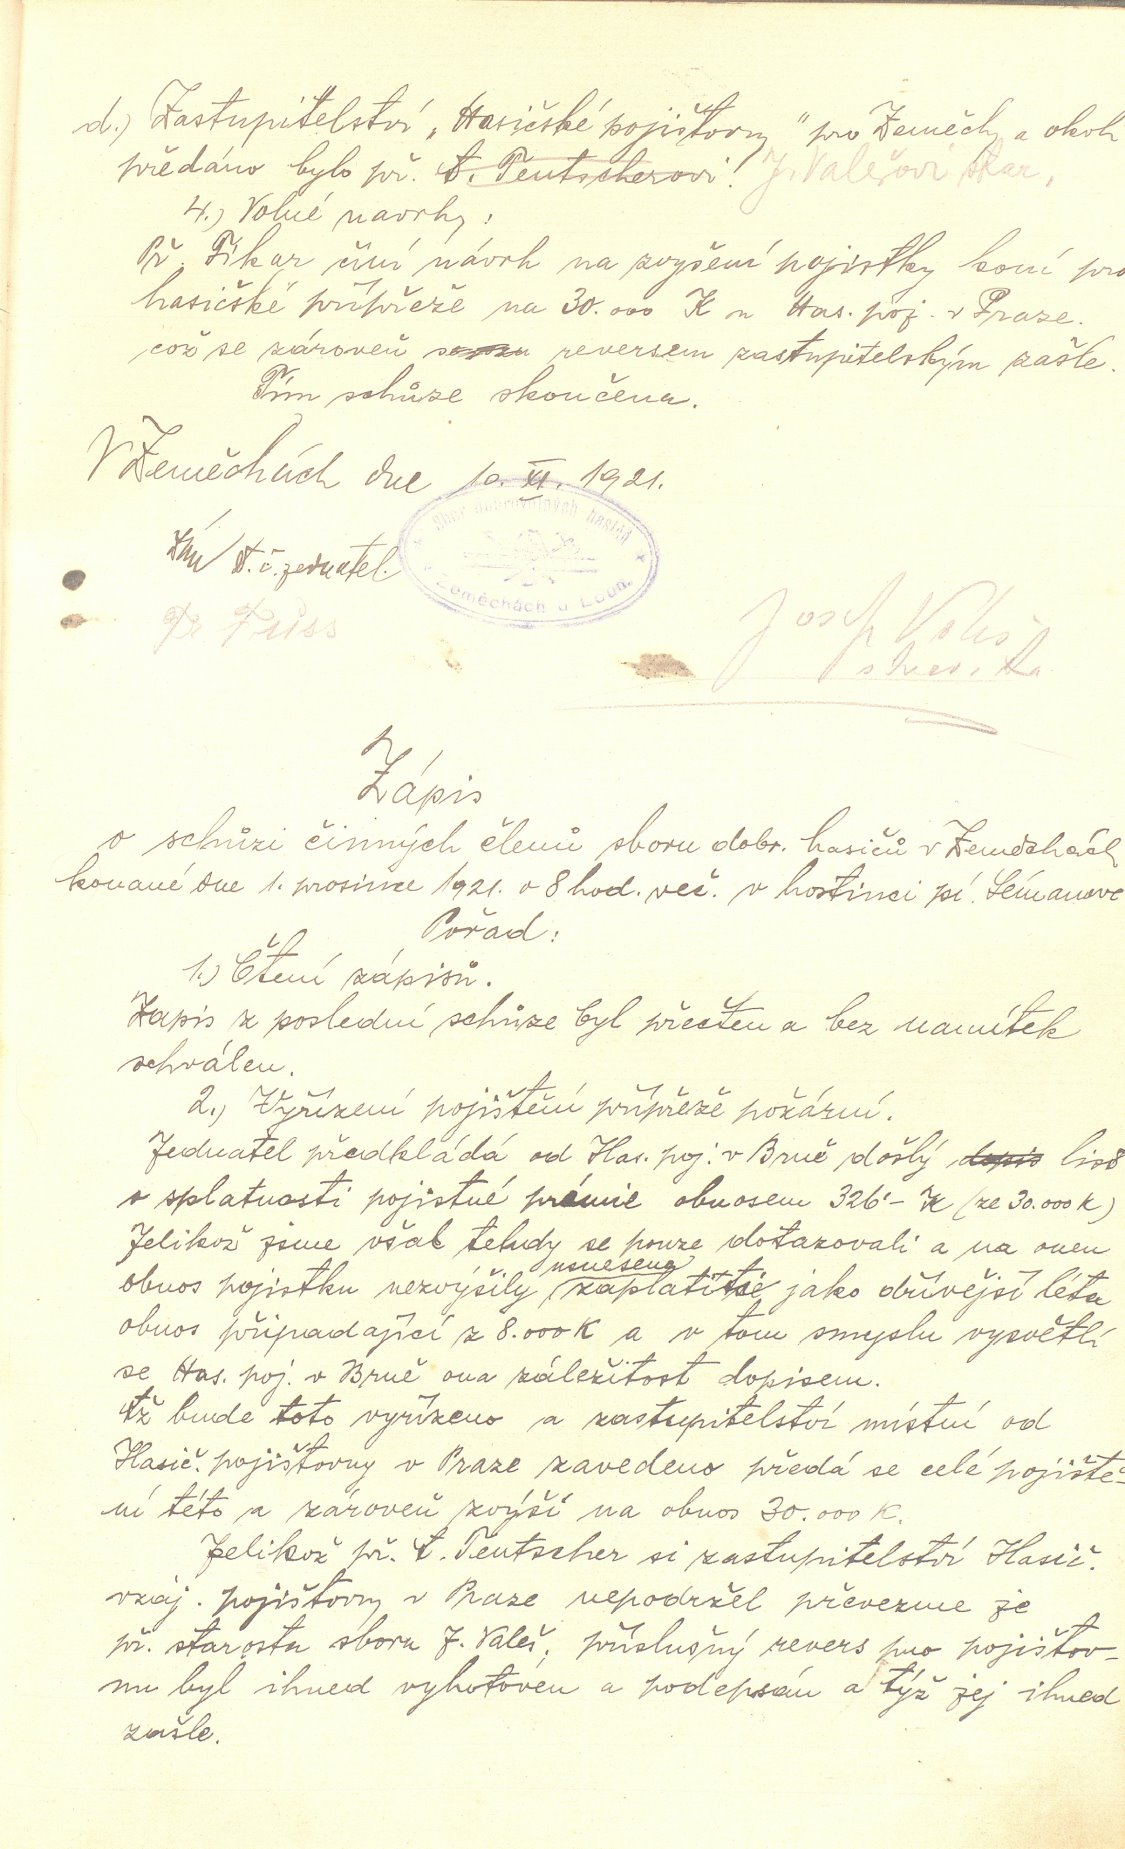 d.) Zastupitelství „Hasičské pojišťovny" pro Zeměchy a okolí
předáno bylo př. A. Teutscherovi! J. Valešovi star,
4.) Volné navrhy:
Př. Fikar činí návrh na zvyšení pojistky koní pro
hasičské přípřeže na 30.000 K u Has. poj. v Praze.
což se zároveň reversem zastupitelským zašle.
Tím schůze skončena.
V Zeměchách dne 10. XI. 1921.
t.č. jednatel.
Sbor dobrovolných hasičů
v Zeměchách u Loun.
Josef Valeš
starosta
Zápis
o schůzi činných členů sboru dobr. hasičů v Zeměchách
konané dne 1. prosince 1921. o 8 hod. več. v hostinci pí.
Pořad:
1.) Čtení zápisů.
Zapis z poslední schůze byl přečten a bez namítek
schválen.
2.) Vyřízení pojištění přípřeže požární.
Jednatel předkládá od Has. poj. v Brně došlý dopis list
o splatnosti pojistné prémie obnosem 326'- K (ze 30.000 K)
Jelikož jsme však tehdy se pouze dotazovali a na onen
usneseno
obnos pojistku nezvýšily zaplatit jako dřívější léta
obnos připadající z 8.000 K a v tom smyslu vysvětlí
se Has. poj. v Brně ona záležitost dopisem.
Až bude toto vyřízeno a zastupitelství místní od
Hasič. pojišťovny v Praze zavedeno předá se celé pojiště-
ní této a zároveň zvýší na obnos 30.000 K.
Jelikož př. A. Teutscher si zastupitelství Hasič.
vzáj. pojišťovny v Praze nepodržel převezme je
př. starosta sboru J. Valeš; příslušný revers pro pojišťov-
nu byl ihned vyhotoven a podepsán a týž jej ihned
zašle.